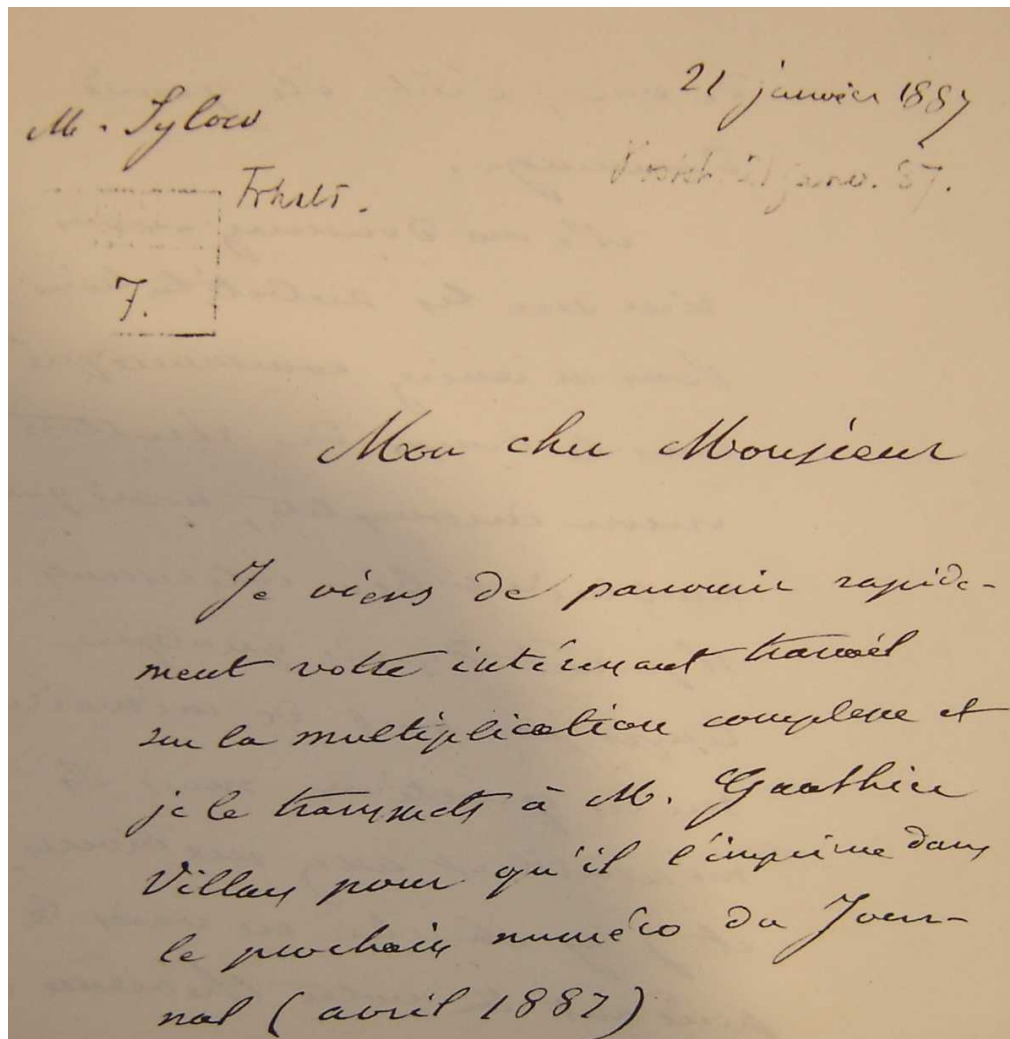 21 janvier 1887
M. Sylow
21 janv. 87.
7.
Mon cher Monsieur
Je viens de parcourir rapide-
ment votre intéressant travail
sur la multiplication complexe et
je le transmets à M. Gauthier
Villars pour qu'il l'imprime dans
le prochain numéro du Jour-
nal (avril 1887)